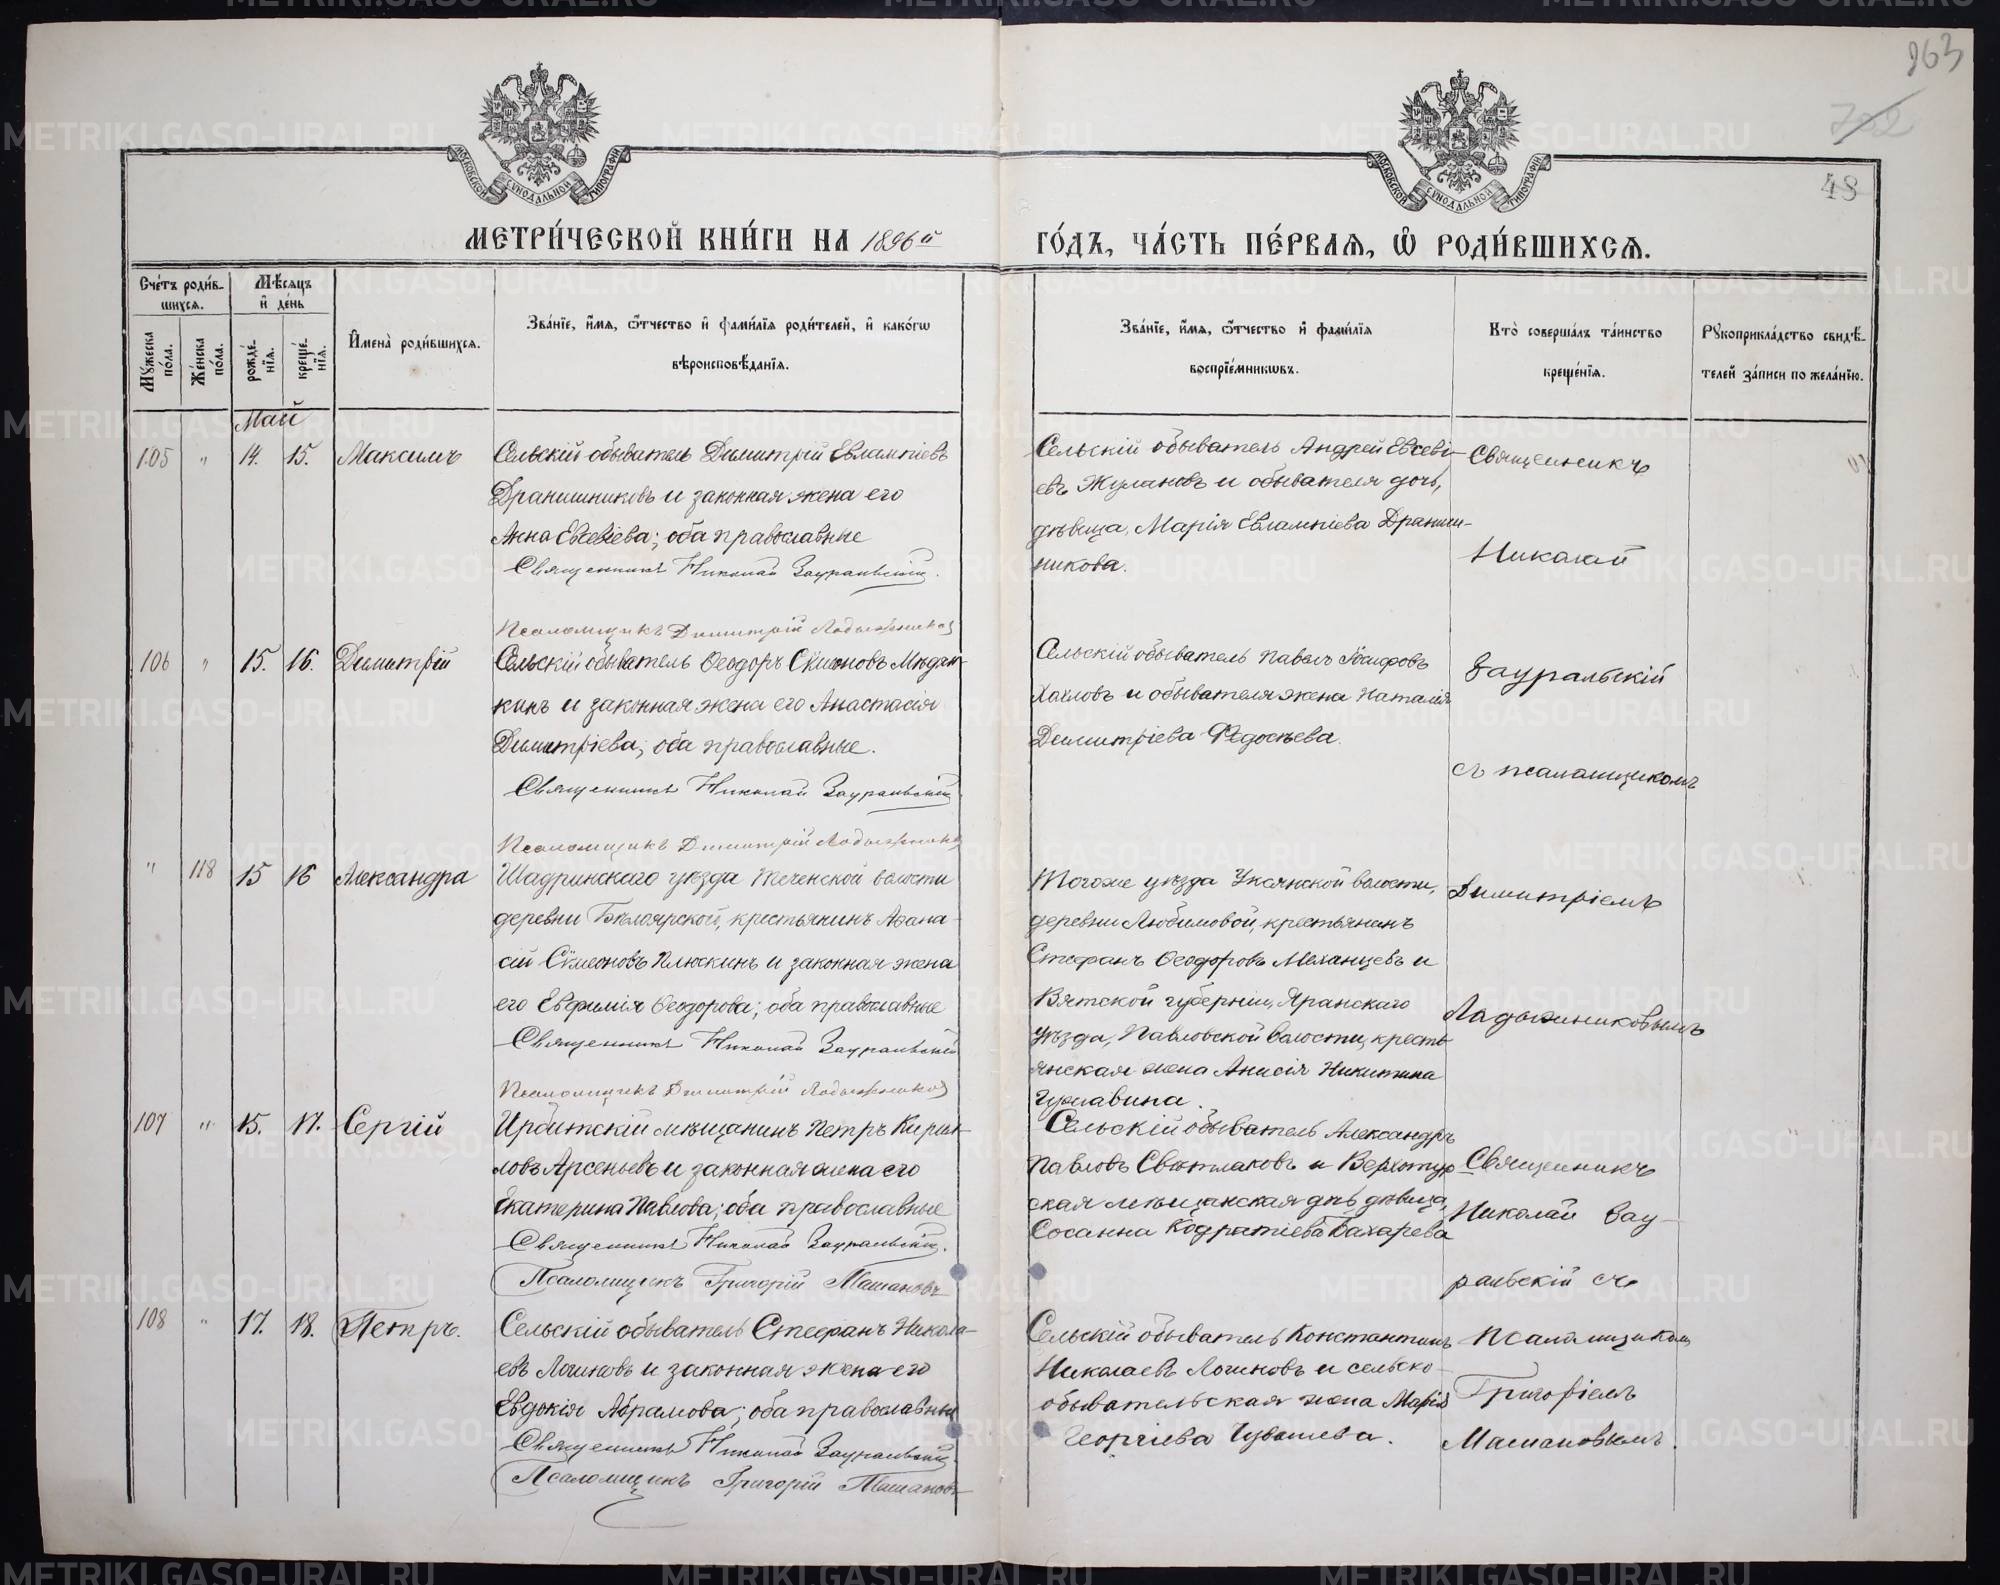 963
702
48
МОСКОВСКОЙ СѴНОДАЛЬНОЙ ТИПОГРАФІИ
МОСКОВСКОЙ СѴНОДАЛЬНОЙ ТИПОГРАФІИ
МЕТРИ́ЧЕСКОЙ КНИ́ГИ НА 1896й
ГО́ДЪ, ЧА́СТЬ ПЕ́РВАѦ, Ѽ РОДИ́ВШИХСѦ.
Сче́тъ роди́в-
шихсѧ.
Мѣ́сѧцъ
и҆ де́нь
Мꙋ́жеска по́ла.
Же́нска по́ла.
рожде́нїѧ.
креще́нїѧ.
И҆мена̀ роди́вшихсѧ.
Зва́нїе, и҆́мѧ, ѻ҆́тчество и҆ фами́лїѧ роди́телей, и҆ како́гѡ
вѣроисповѣ́данїѧ.
Зва́нїе, и҆́мѧ, ѻ҆́тчество и҆ фами́лїѧ
воспрїе́мникѡвъ.
Кто̀ соверша́лъ та́инство
креще́нїѧ.
Рꙋкоприкла́дство свидѣ́-
телей за́писи по жела́нїю.
Май
105 " 14. 15. Максимъ
Сельскій обыватель Димитрій Евлампіевъ
Дранишниковъ и законная жена его
Анна Евсевіева; оба православные
Священникъ Николай Зауральскій.
Псаломщикъ Димитрій Ладыжниковъ
Сельскій обыватель Андрей Евсеві-
евъ Жулановъ и обывателя дочь,
дѣвица, Марія Евлампіева Дранишникова.
Священникъ
Николай
106 " 15. 16. Димитрій
Сельскій обыватель Ѳеодоръ Сѵмеоновъ Мѣдян-
кинъ и законная жена его Анастасія
Димитріева; оба православные.
Священникъ Николай Зауральскій
Псаломщикъ Димитрій Ладыжниковъ
Сельскій обыватель Павелъ Іосифовъ
Хохловъ и обывателя жена Наталія
Димитріева Федосѣева.
Зауральскій
съ псаломщикомъ
" 118 15 16 Александра
Шадринскаго уѣзда Теченской волости
деревни Бѣлоярской, крестьянинъ Аѳана-
сій Сѵмеоновъ Плюскинъ и законная жена
его Евфимія Ѳеодорова; оба православные
Священникъ Николай Зауральскій
Псаломщикъ Димитрій Ладыжниковъ
Тогоже уѣзда Уксянской волости,
деревни Любимовой, крестьянинъ
Стефанъ Ѳеодоровъ Механцевъ и
Вятской губерніи, Яранскаго
уѣзда, Павловской волости, кресть-
янская жена Анисія Никитина
Димитріемъ
Ладыжниковымъ
107 " 15. 17. Сергій
Ирбитскій мѣщанинъ Петръ Кирил-
ловъ Арсеньевъ и законная жена его
Екатерина Павлова; оба православные
Священникъ Николай Зауральскій.
Псаломщикъ Григорій Машановъ
Сельскій обыватель Александръ
Павловъ Свѣтлаковъ и Верхотур
ская мѣщанская дѣвица,
Сосанна Кодратіева Бахарева
Священникъ
Николай Зау-
ральскій съ
108 " 17. 18. Петръ.
Сельскій обыватель Стефанъ Никола-
евъ Логиновъ и законная жена его
Евдокія Абрамова; оба православные
Священникъ Николай Зауральскій.
Псаломщикъ Григорій Машановъ
Сельскій обыватель Константинъ
Николаевъ Логиновъ и сельско-
обывательская жена Марія
Георгіева Чувашева.
псаломщикомъ
Григоріемъ
Машановымъ.
METRIKI.GASO-URAL.RU